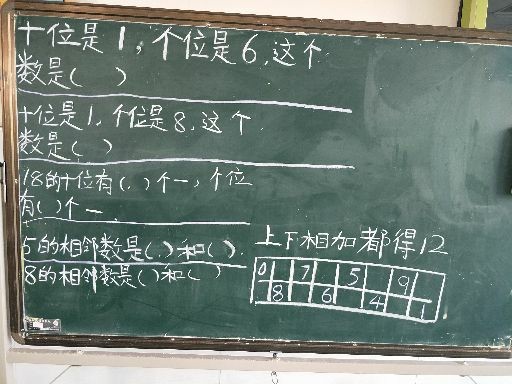 十位是1，个位是6，这个
数是（ ）
十位是1，个位是8，这个
数是（ ）
18的十位有（ ）个一，个位
有（ ）个一
5的相邻数是（ ）和（ ）
8的相邻数是（ ）和（ ）
上下相加都得12
0 7 5 9
8 6 4 1